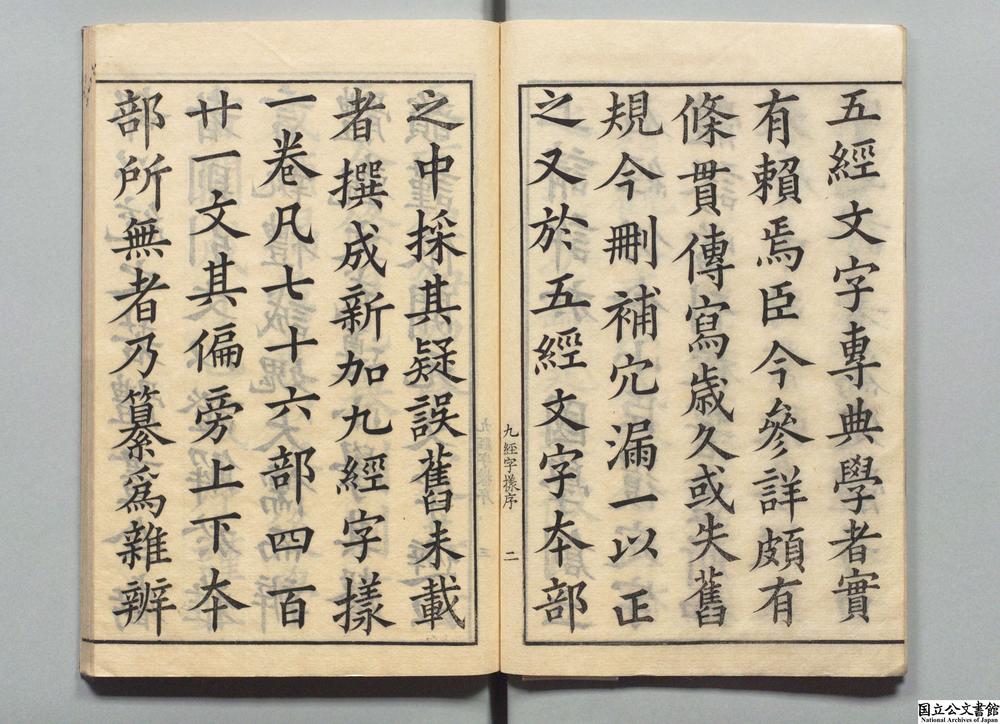 五經文字專典學者實
有賴焉臣今參詳頗有
條貫傳寫歲久或失舊
規今刪補冗漏一以正
之又於五經文字本部
九經字樣序
二
之中採其疑誤舊未載
者撰成新加九經字樣
一卷凡七十六部四百
廿一文其偏旁上下本
部所無者乃纂爲雜辨
国立公文書館
National Archives of Japan